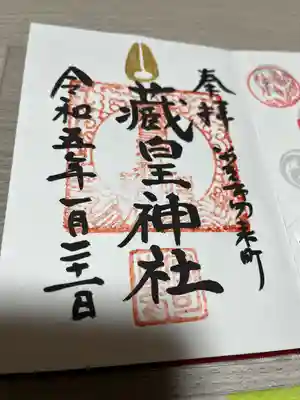 奉拝
藏皇神社
令和五年一月二十一日